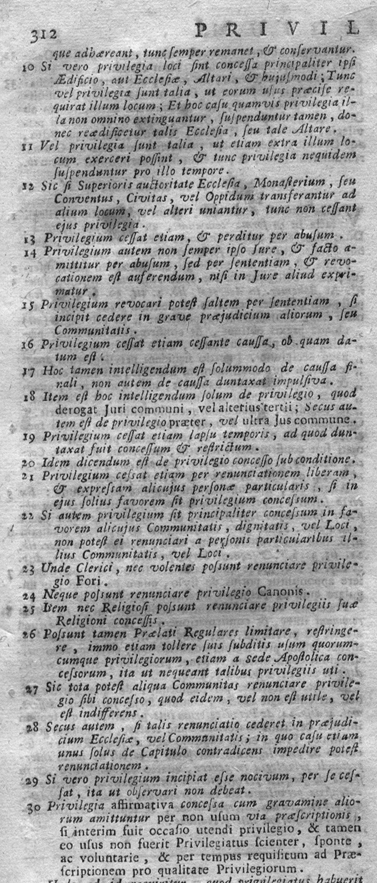 312 PRIVIL
que adhæreant, tunc semper remanet, & conservantur.
10 Si vero privilegia loci sint concessa principaliter ipsi
Ædificio, aut Ecclesiæ, Altari, & hujusmodi; Tunc
vel privilegia sunt talia, ut eorum usus præcise re-
quirat illum locum; Et hoc casu quamvis privilegia il-
la non omnino extinguantur, suspenduntur tamen, do-
nec reædificetur talis Ecclesia, seu tale Altare.
11 Vel privilegia sunt talia, ut etiam extra illum lo-
cum exerceri possint, & tunc privilegia nequidem
suspenduntur pro illo tempore.
12 Sic si Superioris auctoritate Ecclesia, Monasterium, seu
Conventus, Civitas, vel Oppidum transferantur ad
alium locum, vel alteri uniantur, tunc non cessant
ejus privilegia.
13 Privilegium cessat etiam, & perditur per abusum.
14 Privilegium autem non semper ipso jure, & facto a-
mittitur per abusum, sed per sententiam, & revo-
cationem est auferendum, nisi in Jure aliud expri-
matur.
15 Privilegium revocari potest saltem per sententiam, si
incipit cedere in grave præjudicium aliorum, seu
Communitatis.
16 Privilegium cessat etiam cessante caussa, ob quam da-
tum est.
17 Hoc tamen intelligendum est solummodo de caussa fi-
nali, non autem de caussa duntaxat impulsiva.
18 Item est hoc intelligendum solum de privilegio, quod
derogat Juri communi, vel alterius tertii; Secus au-
tem est de privilegio præter, vel ultra Jus commune.
19 Privilegium cessat etiam lapsu temporis, ad quod dun-
taxat fuit concessum & restrictum.
20 Idem dicendum est de privilegio concesso sub conditione.
21 Privilegium cessat etiam per renunciationem liberam,
& expressam alicujus personæ particularis, si in
ejus solius favorem sit privilegium concessum.
22 Si autem privilegium sit principaliter concessum in fa-
vorem alicujus Communitatis, dignitatis, vel Loci,
non potest ei renunciari a personis particularibus il-
lius Communitatis, vel Loci.
23 Unde Clerici, nec volentes possunt renunciare privile-
gio Fori.
24 Neque possunt renunciare privilegio Canonis.
25 Item nec Religiosi possunt renunciare privilegiis suæ
Religioni concessis.
26 Possunt tamen Prælati Regulares limitare, restringe-
re, immo etiam tollere suis subditis usum quorum-
cumque privilegiorum, etiam a sede Apostolica con-
cessorum, ita ut nequeant talibus privilegiis uti.
27 Sic tota potest aliqua Communitas renunciare privile-
gio sibi concesso, quod eidem, vel non est utile, vel
est indifferens.
28 Secus autem, si talis renunciatio cederet in præjudi-
cium Ecclesiæ, vel Communitatis; in quo casu etiam
unus solus de Capitulo contradicens impedire potest
renunciationem.
29 Si vero privilegium incipiat esse nocivum, per se ces-
sat, ita ut observari non debeat.
30 Privilegia affirmativa concessa cum gravamine alio-
rum amittuntur per non usum via præscriptionis,
si interim fuit occasio utendi privilegio, & tamen
eo usus non fuerit Privilegiatus scienter, sponte,
ac voluntarie, & per tempus requisitum ad Præ-
scriptionem pro qualitate Privilegiorum.